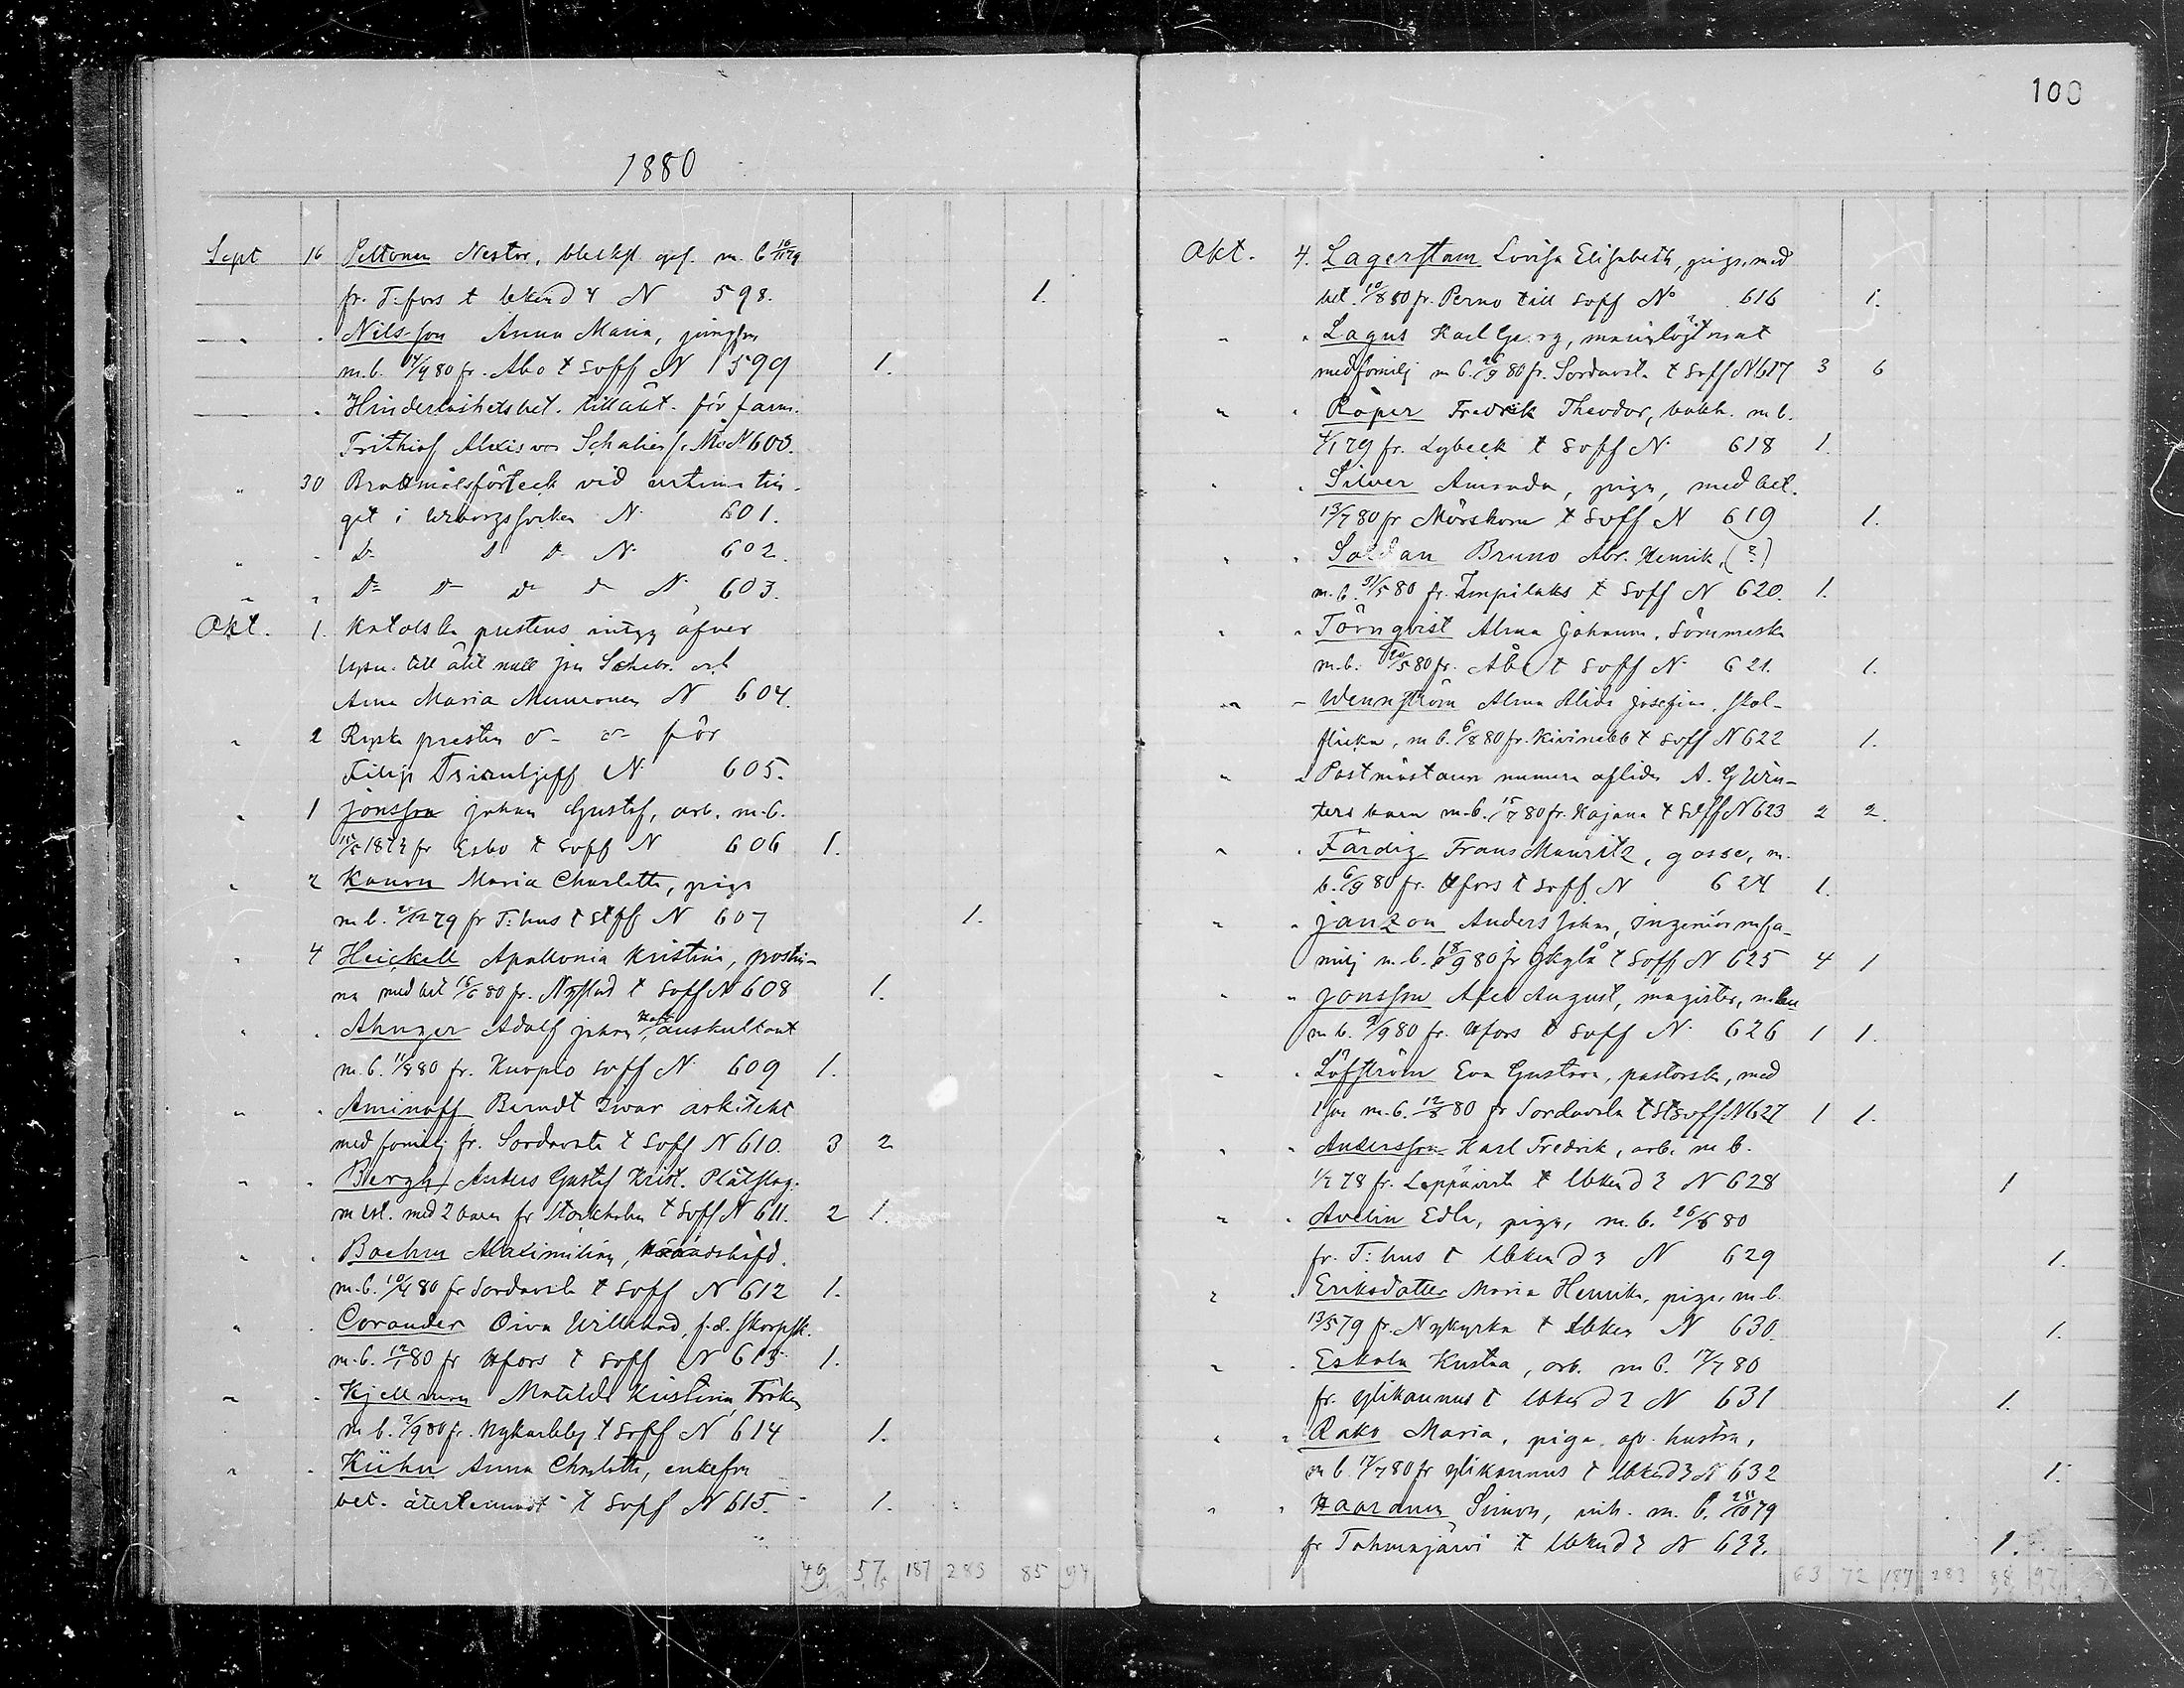 100
1880
Sept 16 Peltonen Nestor, blecksl. gef. m. b 10/11 79
fr. T:fors t lbkend 4 N 598. 1.
" . Nilsson Anna Maria, jungfru
m. b. 14/9 80 fr. Åbo t soff N 599 1.
" . Hinderlöshetsbet. till äkt. för farm.
Frithiof Alexis von Schalien f. N 600.
" 30 Brottmålsförteck vid urtima tin-
get i Wiborgs socken N 601.
" . D- D- D- N 602.
" " D- D- D- D- N 603.
Okt. 1. Katolska prestens intyg öfver
lysn. till äkt mell och
Anna Maria Mununen N 604.
" 2 Ryska presten d- d- för
Filip N 605.
" 1 Jonsson Johan Gustaf, arb. m. b.
1873 fr Esbo t soff N 606 1.
" 2 Kanon Maria Charlotta, piga
m b. 2/12 79 fr T:hus t stff N 607 1.
" 4 Heickell Apollonia Kristina, prostin-
na med bet 16/6 80 fr. Nystad t soff N 608 1.
" . Ahnger Adolf Johan auskultant
m. b. 11/8 80 fr. Kuopio soff N 609 1.
" . Aminoff Berndt Iwar arkitekt
med familj fr. Sordavala t soff N 610. 3 2
" . Bergh Anders Gustaf Krist. Plåtslag.
m est. med 2 barn fr Stockholm t soff N 611. 2 1.
" . Boehm Maximilian, häradshöfd.
m. b. 10/4 80 fr Sordavala t soff N 612 1.
" . Corander Oiva Willehad, f. d. skarpsk.
m. b. 12/1 80 fr Hfors t soff N 613 1.
" . Kjellman Matilda Kristina, Fröken
m b. 2/9 80 fr. Nykarleby t soff N 614 1.
" . Kühn Anna Charlotta, enkefru
bet. återlemnadt t soff N 615. 1.
49. 57. 187 283 85 94
Okt. 4. Lagerstam Lovisa Elisabeth, piga, med
bet. 10/8 80 fr. Perno till soff No 616 1.
" " Lagus Karl Georg,
med familj m b. 26/9 80 fr. Sordavala t soff N 617 3 6
" " Röper Fredrik Theodor, bokh. m b.
4/1 79 fr. Lybeck t soff N 618 1.
" " Silver Amanda, piga, med bet.
13/7 80 fr Mörskom t soff N 619 1.
" " Soldan Bruno Abr. Henrik, (?)
m. b. 31/5 80 fr. Impilaks t soff N 620. 1.
" " Törnqvist Alma Johanna, Sömmerska
m. b. 20/5 80 fr. Åbo t soff N 621. 1.
" " Wennström Alma Alida Josefina, skol-
flicka, m b. 6/8 80 fr. Kivinebb t soff N 622 1.
" " Postmästaren numera aflidne A. G Win-
ters barn m. b. 15/7 80 fr. Kajana t soff N 623 2 2.
" " Färdig Frans Mauritz, gosse, m.
b. 6/9 80 fr. Hfors t soff N 624 1.
" " Janzon Anders John, Ingeniör m fa-
milj m. b. 18/9 80 fr Jkylä t soff N 625 4 1
" " Jonsson Axel August, magister, m fru
m b. 9/9 80 fr. Hfors t soff N 626 1 1.
" " Löfström Eva Gustava, pastorska, med
1 son m. b. 12/8 80 fr Sordavala t stsoff N 627 1 1.
" " Andersson Karl Fredrik, arb. m b.
1/7 78 fr. Leppävirta t lbkend 3 N 628 1
" " Avelin Edla, piga, m. b. 26/6 80
fr. T:hus t lbkend 3 N 629 1.
" " Eriksdotter Maria Henrika, piga, m b.
13/5 79 fr. Nykyrka t lbken N 630 1.
" " Eskola Kustaa, arb. m b. 17/7 80
fr. Ylikannus t lbkend 2 N 631 1.
" " Rako Maria, piga, af. hustru,
m b. 17/7 80 fr Ylikannus t lbkend 3 N 632 1.
" " Haaranen Simon, inh. m. b. 79
fr Tohmajärvi t lbkend 3 N 633. 1.
63 72 187 283 88 97